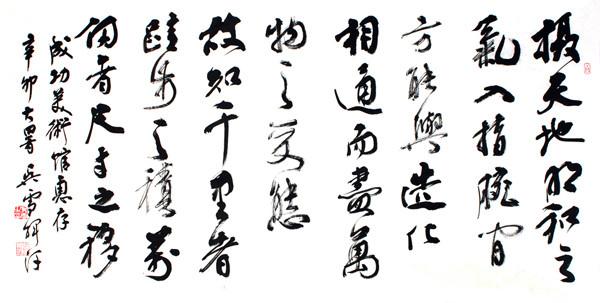 摄天地阳和之
氣入指腕間
方能與造化
相通而盡萬
物之变態
故知千里者
跬步之積萬
仞者尺寸之移
成功美術館惠存
辛卯大暑 吴雪